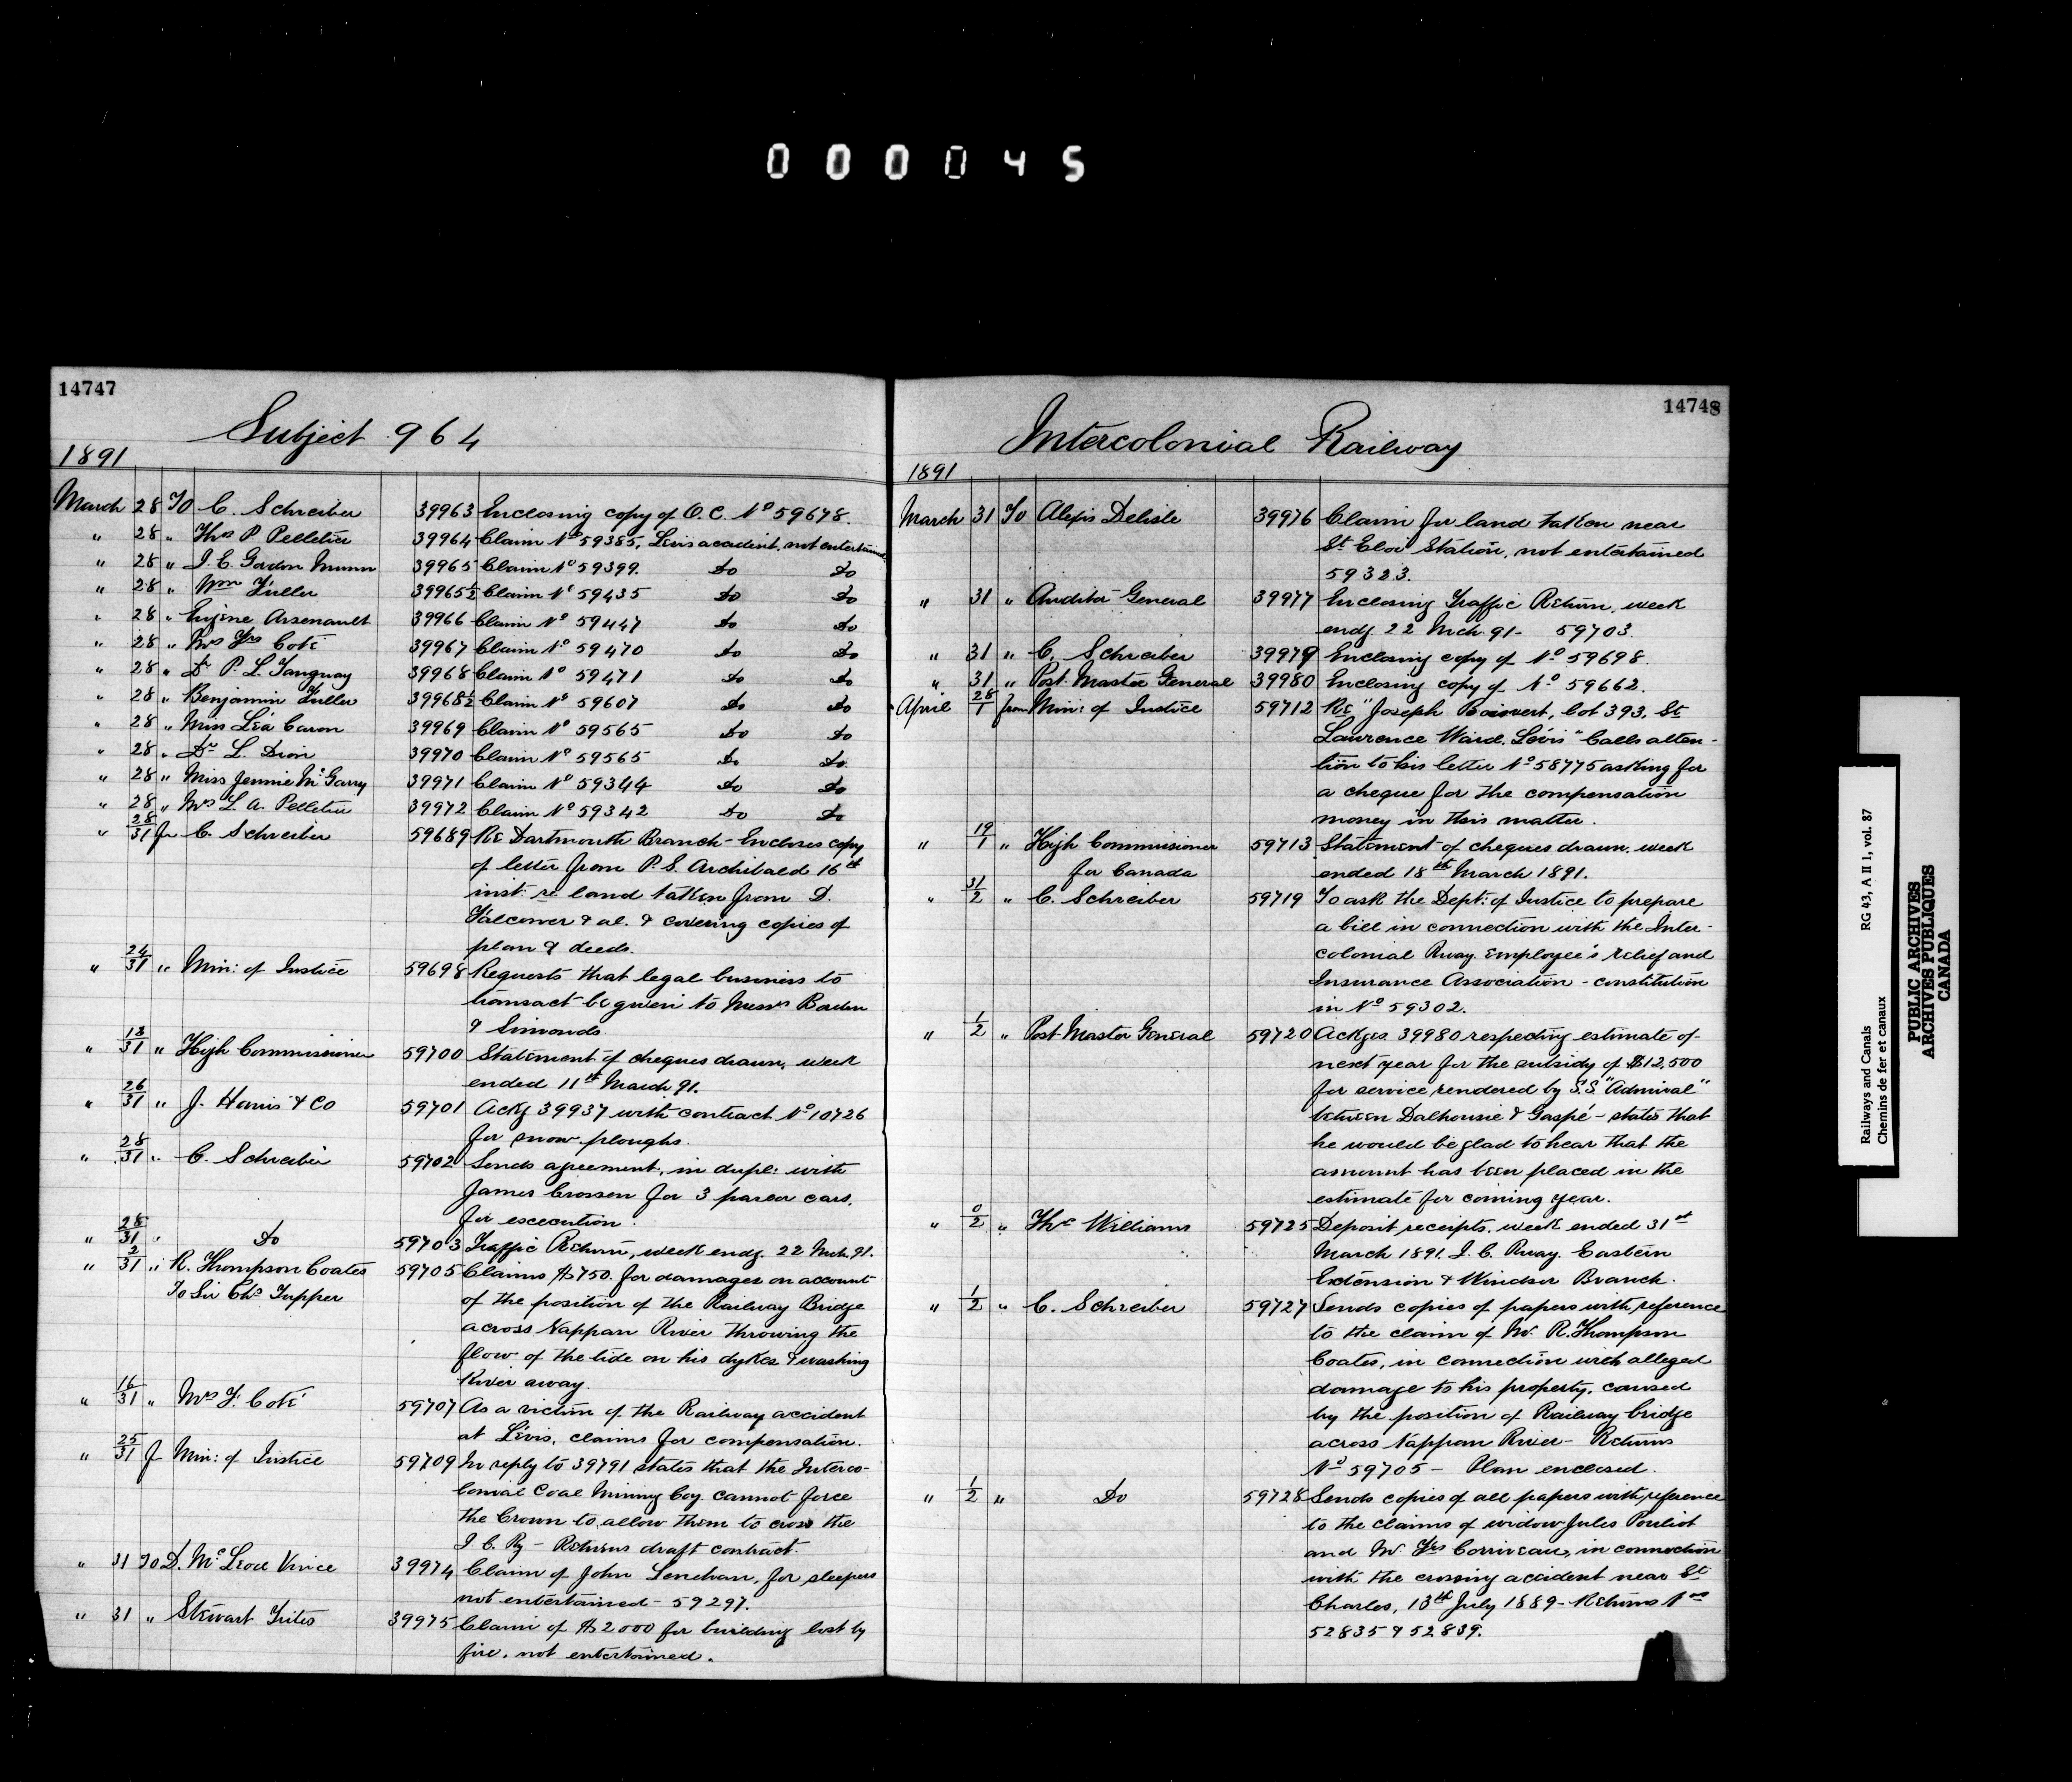 000045
14747
Subject 964
1891
March 28 To C. Schreiber 39963 Enclosing copy of O.C. No 59678.
" 28 " Ths P. Pelletier 39964 Claim No 59385, Levis accident, not entertained
" 28 " J. E. Gordon Munn 39965 Claim No 59399. Do Do
" 28 " Wm Fuller 39965½ Claim No 59435 Do Do
" 28 " Eugène Arsenault 39966 Claim No 59447 Do Do
" 28 " Mrs Frs Coté 39967 Claim No 59470 Do Do
" 28 " Dr P. L. Tanguay 39968 Claim No 59471 Do Do
" 28 " Benjamin Fuller 39968½ Claim No 59607 Do Do
" 28 " Miss Léa Caron 39969 Claim No 59565 Do Do
" 28 " Dr L. Dion 39970 Claim No 59565 Do Do
" 28 " Miss Jennie McGarry 39971 Claim No 59344 Do Do
" 28 " Mrs L. A. Pelletier 39972 Claim No 59342 Do Do
" 28/31 fr C. Schreiber 59689 Re Dartmouth Branch - Encloses copy
of letter from P. S. Archibald 16th
inst: re land taken from D.
Falconer & al. & covering copies of
plan & deeds.
" 24/31 " Min: of Justice 59698 Requests that legal business to
transact be given to Messrs Borden
& Simonds
" 13/31 " High Commissioner 59700 Statement of cheques drawn, week
ended 11th March 91.
" 26/31 " J. Harris & Co 59701 Ackg 39937 with contract No 10726
for snow ploughs.
" 28/31 " C. Schreiber 59702 Sends agreement, in dupl: with
James Crossen for 3 parlor cars,
for excecution.
" 28/31 " Do 59703 Traffic Return, week endg. 22 Mch. 91.
" 2/31 " R. Thompson Coates 59705 Claims $750. for damages on account
To Sir Chs Tupper of the position of the Railway Bridge
across Nappan River throwing the
flow of the tide on his dykes & washing
River away.
" 16/31 " Mrs F. Coté 59707 As a victim of the Railway accident
at Lévis, claims for compensation.
" 25/31 f Min: of Justice 59709 In reply to 39791 states that the Interco-
lonial Coal Mining Coy. cannot force
the Crown to allow them to cross the
I. C. Ry - Returns draft contract.
" 31 To D. McLeod Vince 39974 Claim of John Lenehan, for sleepers
not entertained - 59297.
" 31 " Stewart Trites 39975 Claim of $2000 for building lost by
fire, not entertained.
14748
Intercolonial Railway
1891
March 31 To Alexis Delisle 39976 Claim for land taken near
St Eloi Station, not entertained
59323.
" 31 " Auditor General 39977 Enclosing Traffic Return, week
endg. 22 Mch. 91 - 59703.
" 31 " C. Schreiber 39979 Enclosing copy of No 59698.
" 31 " Post Master General 39980 Enclosing copy of No 59662.
April 28/1 from Min: of Justice 59712 Re "Joseph Boisvert, lot 393, St
Lawrence Ward, Lévis" Calls atten-
tion to his letter No 58775 asking for
a cheque for the compensation
money in this matter.
" 19/1 " High Commissioner 59713 Statement of cheques drawn, week
for Canada ended 18th March 1891.
" 31/2 " C. Schreiber 59719 To ask the Dept: of Justice to prepare
a bill in connection with the Inter-
colonial Rway. Employee's relief and
Insurance Association - constitution
in No 59302.
" 1/2 " Post Master General 59720 Ackges 39980 respecting estimate of
next year for the subsidy of $12,500
for service rendered by S.S. "Admiral"
between Dalhousie & Gaspé - states that
he would be glad to hear that the
amount has been placed in the
estimate for coming year.
" 0/2 " Ths Williams 59725 Deposit receipts, week ended 31st
March 1891. I. C. Rway. Eastern
Extension & Windsor Branch.
" 1/2 " C. Schreiber 59727 Sends copies of papers with reference
to the claim of Mr. R. Thompson
Coates, in connection with alleged
damage to his property, caused
by the position of Railway bridge
across Nappan River - Returns
No 59705 - Plan enclosed.
" 1/2 " Do 59728 Sends copies of all papers with reference
to the claims of widow Jules Pouliot
and Mr. Frs Corriveau, in connection
with the crossing accident near St
Charles, 13th July 1889 - Returns Nos
52835 & 52839.
Railways and Canals RG 43, A II 1, vol. 87
Chemins de fer et canaux
PUBLIC ARCHIVES
ARCHIVES PUBLIQUES
CANADA